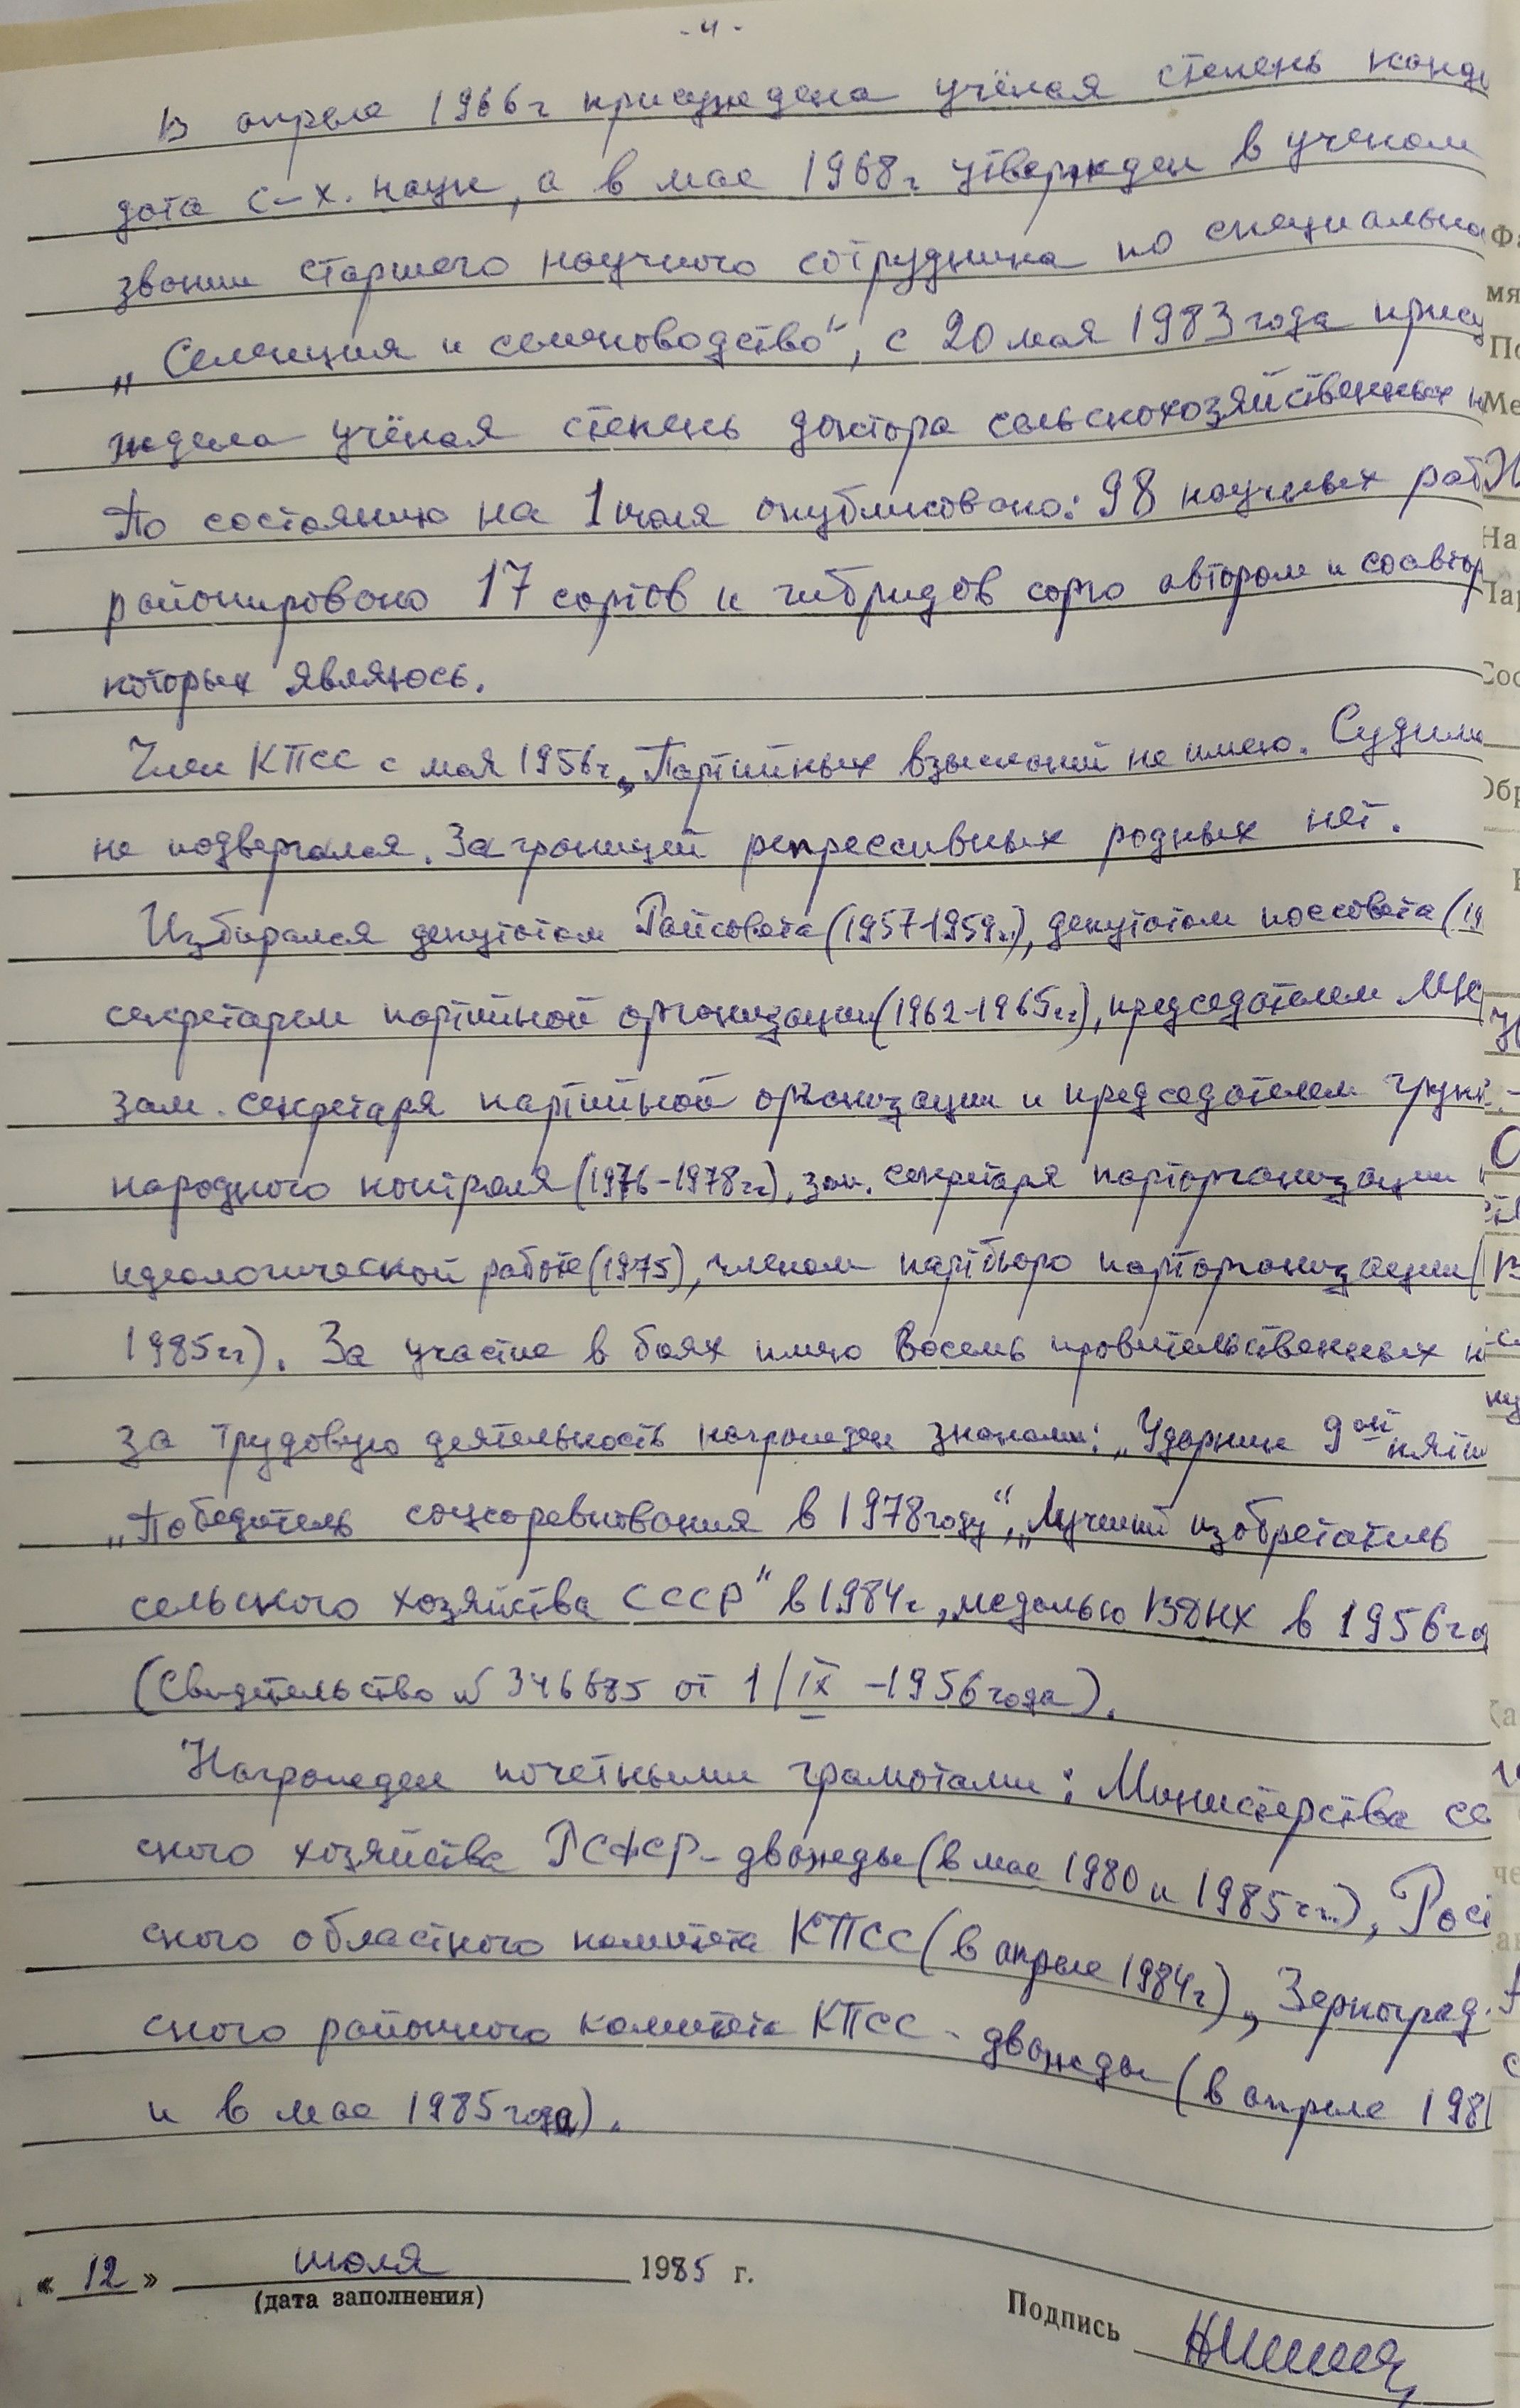 - 4 -
В апреле 1966г присуждена учёная степень канди
дата с-х. наук, а в мае 1968г. утвержден в ученом
звании старшего научного сотрудника по специально
„Селекция и семеноводство“, с 20 мая 1983 года прису
ждена учёная степень доктора сельскохозяйственных н
По состоянию на 1 июля опубликовано: 98 научных раб
районировано 17 сортов и гибридов сорго автором и соавтор
которых являюсь.
Член КПСС с мая 1956г. Партийных взысканий не имею. Судим
не подвергался. За границей репрессивных родных нет.
Избирался депутатом Райсовета (1957-1959гг), депутатом поссовета (19
секретарем партийной организации (1962-1965гг), председателем
зам. секретаря партийной организации и председателем групп
народного контроля (1976-1978гг), зам. секретаря парторганизации
идеологической работе (1975), членом партбюро парторганизации (
1985гг). За участие в боях имею восемь правительственных н
за трудовую деятельность награжден знаками: „Ударник 9ой пяти
„Победитель соцсоревнования в 1978 году“, „Лучший изобретатель
сельского хозяйства СССР“ в 1984г, медалью ВДНХ в 1956го
(Свидетельство № 346685 от 1/IX - 1956 года).
Награжден почетными грамотами: Министерства се
ского хозяйства РСФСР - дважды (в мае 1980 и 1985гг.), Рост
ского областного комитета КПСС (в апреле 1984г), Зерноград.
ского районного комитета КПСС - дважды (в апреле 198
и в мае 1985 года).
« 12 » июля 1985 г.
(дата заполнения)
Подпись